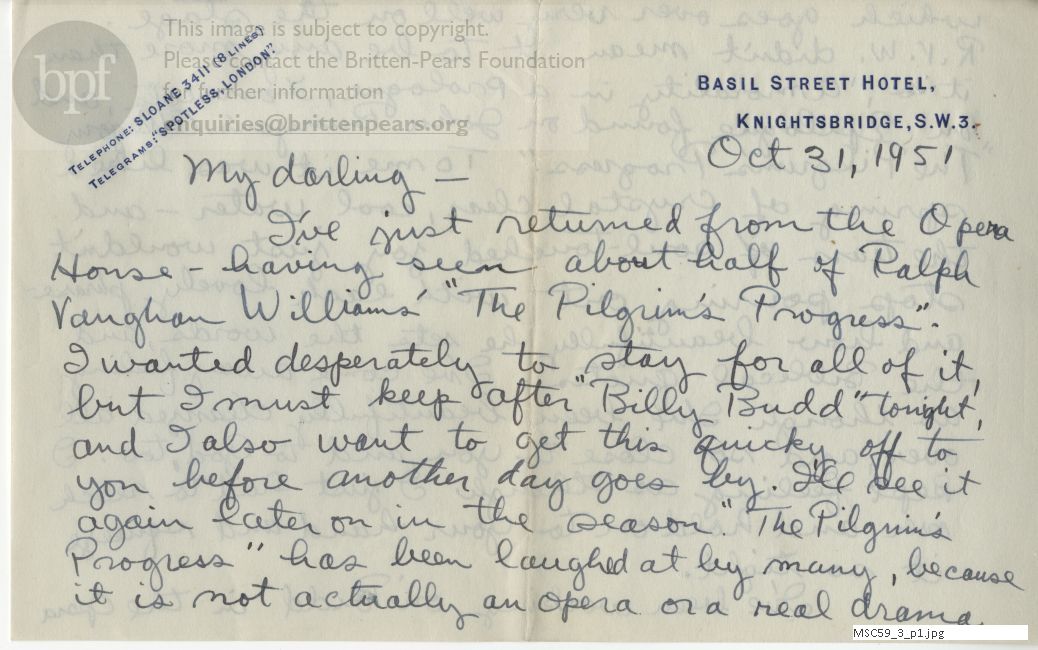 bpf
This image is subject to copyright.
Please contact the Britten-Pears Foundation
for further information
enquiries@brittenpears.org
TELEPHONE: SLOANE 3411 (8 LINES)
TELEGRAMS: "SPOTLESS, LONDON."
BASIL STREET HOTEL,
KNIGHTSBRIDGE, S.W.3.
Oct 31, 1951
My darling —
I've just returned from the Opera
House – having seen about half of Ralph
Vaughan Williams' "The Pilgrim's Progress".
I wanted desperately to stay for all of it,
but I must keep after "Billy Budd" tonight,
and I also want to get this quicky off to
you before another day goes by. I'll see it
again later on in the season. "The Pilgrim's
Progress" has been laughed at by many, because
it is not actually an opera or a real drama
MSC59_3_p1.jpg